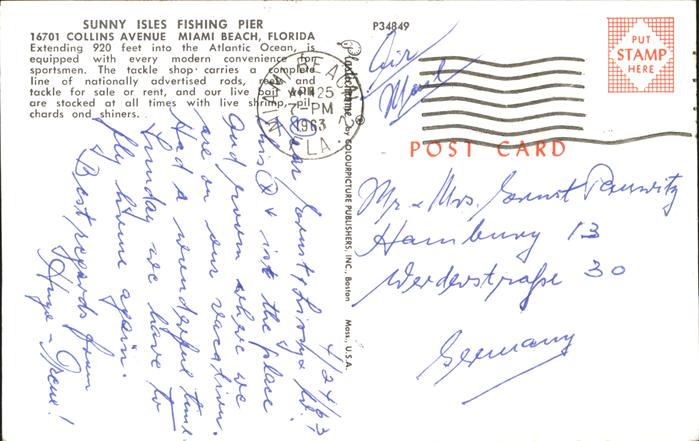 SUNNY ISLES FISHING PIER
16701 COLLINS AVENUE MIAMI BEACH, FLORIDA
Extending 920 feet into the Atlantic Ocean, is
equipped with every modern convenience for
sportsmen. The tackle shop carries a complete
line of nationally advertised rods, reels and
tackle for sale or rent, and our live bait wells
are stocked at all times with live shrimp, pil-
chards and shiners.
P34849
Air
Mail
MIAMI BEACH
APR 25
7-PM
1963
FLA.
PUT
STAMP
HERE
POST CARD
Plastichrome ® by COLOURPICTURE PUBLISHERS, INC., Boston Mass., U.S.A.
4/24/63
Dear Ernst &
This is the place
and room where we
are on our vacation.
Had a wonderful time
Sunday we have to
fly home again.
Best regards from
Hugo - Irene!
Mr. & Mrs. Ernst
Hamburg 13
Werderstraße 30
Germany